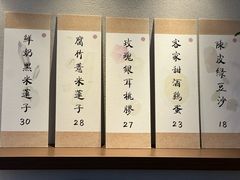 鮮奶黑米蓮子
30
腐竹薏米蓮子
28
玫瑰銀耳桃膠
27
客家甜酒鷄蛋
23
陳皮綠豆沙
18